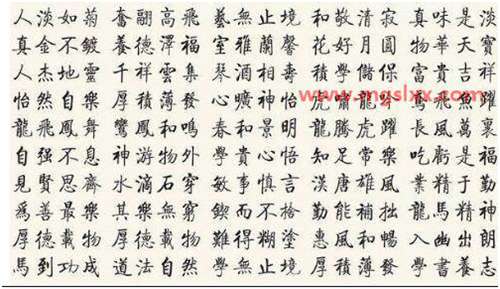 人淡如菊 奮翮高飛 藝無止境 和敬清寂 真味是淡
真金不鍍 養德澤福 室雅蘭馨 花好月圓 物華天寶
人杰地靈 千祥雲集 琴酒相壽 積學儲保 富貴吉祥
怡然自樂 厚積薄發 心曠神怡 虎嘯龍
www.mgslxx.com
龍飛鳳舞 鸞鳳和鳴 春和景明 龍騰虎躍 長風萬裏
自强不息 神游物外 學貴心悟 知足常樂 吃虧是福
見賢思齊 水滴石穿 敏事慎言 漢唐雄風 業精于勤
爲善最樂 其樂無窮 鍥而不捨 勤能補拙 龍馬精神
厚德載物 難得糊塗 惠風和暢 入幽出朗
馬到功成 道法自然 學無止境 厚積薄發 學書養志